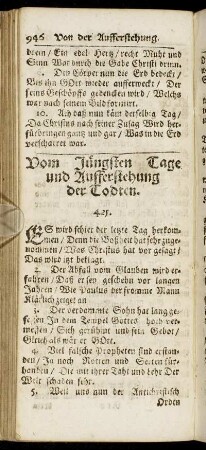 946 Von der Aufferstehung.
drein / Ein edel Hertz / recht Muht und
Sinn War durch die Gabe Christi drinn.
9. Den Cörper nun die Erd bedeckt /
Bis ihn GOtt wieder aufferweckt / Der
seins Geschöpffs gedencken wird / Welchs
war nach seinem Bild formirt.
10. Ach daß nun käm derselbig Tag /
Da Christus nach seiner Zusag Wird her-
fürbringen gantz und gar / Was in die Erd
verscharret war.
Vom Jüngsten Tage
und Aufferstehung
der Todten.
421.
ES wird schier der letzte Tag herkom-
men / Denn die Boßheit hat sehr zuge-
nommen / Was Christus hat vor gesagt /
Das wird itzt beklagt.
2. Der Abfall vom Glauben wird er-
fahren / Daß er sey geschehn vor langen
Jahren / Wie Paulus der fromme Mann
Klärlich zeiget an.
3. Der verdammte Sohn hat lang ge-
sessen In dem Tempel Gottes hoch ver-
messen / Sich gerühmt und sein Gebot /
Gleich als wär er GOtt.
4. Viel falsche Propheten sind erstan-
den / Ja noch Rotten und Secten für-
handen / Die mit ihrer Lahr und Lehr Der
Welt schaden sehr.
5. Weil uns nun der Antichristisch
Orden